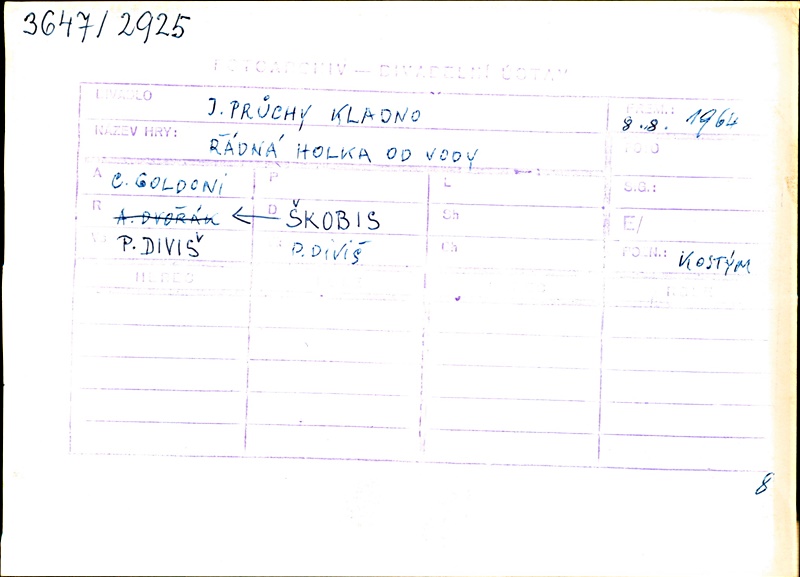 3647/2925
FOTOARCHIV — DIVADELNÍ ÚSTAV
DIVADLO J. PRŮCHY KLADNO PREM.: 8.8. 1964
NÁZEV HRY: ŘÁDNÁ HOLKA OD VODY
A C. GOLDONI P L S.G.:
R A. DVOŘÁK ← D ŠKOBIS Sh E/
P. DIVIŠ P. DIVIŠ Ch POZN.: KOSTÝM
HEREC
8